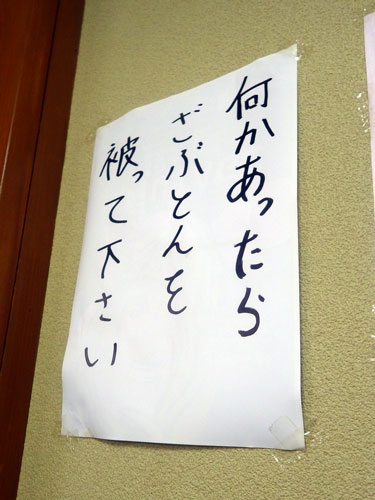 何かあったら
ざぶとんを
被って下さい